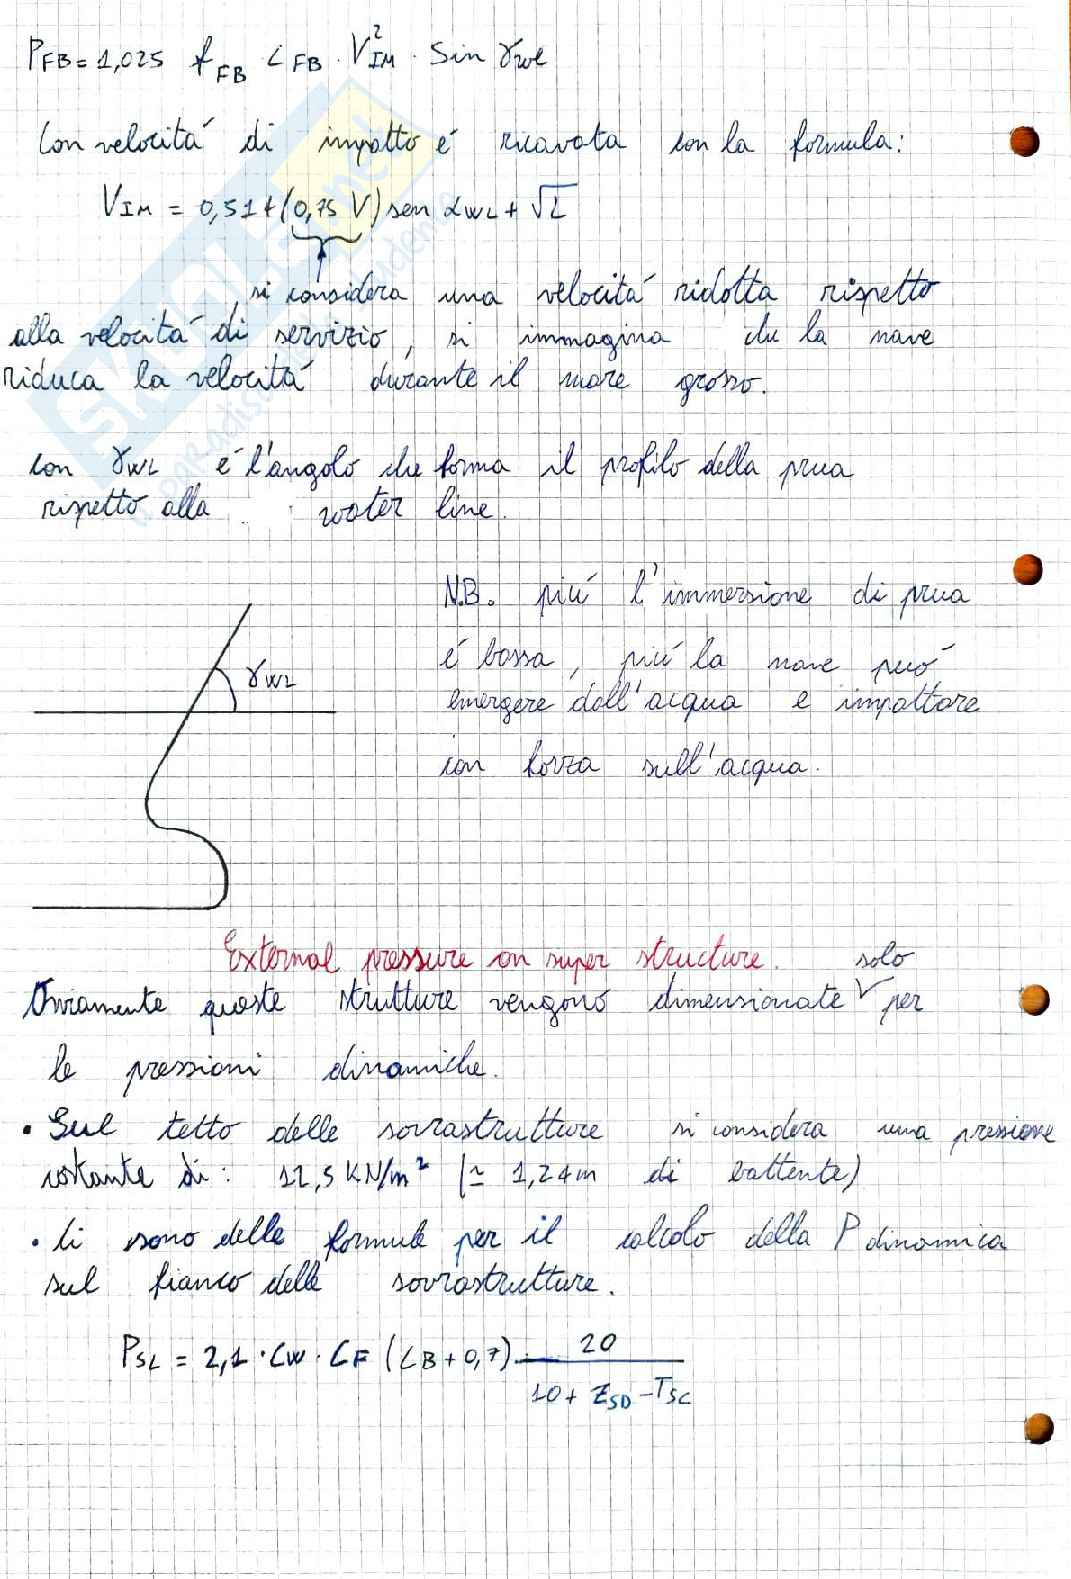 P_FB = 1,025 f_FB · C_FB · V²_IM · Sin γ_WL
Con velocitá di impatto é ricavata con la formula:
V_IM = 0,514 (0,75 V) sen α_WL + √L
si considera una velocitá ridotta rispetto
alla velocitá di servizio, si immagina che la nave
riduca la velocitá durante il mare grosso.
con γ_WL é l'angolo che forma il profilo della prua
rispetto alla water line.
γ_WL
N.B. piú l'immersione di prua
é bassa, piú la nave puó
emergere dall'acqua e impattare
con forza sull'acqua.
External pressure on super structure.
Ovviamente queste strutture vengono dimensionate solo per
le pressioni dinamiche.
• Sul tetto delle sovrastrutture si considera una pressione
costante di: 12,5 KN/m² (≃ 1,24m di battente)
• Ci sono delle formule per il calcolo della P dinamica
sul fianco delle sovrastrutture.
P_SL = 2,1 · C_W · C_F (C_B + 0,7) · 20 / (10 + Z_SD − T_SC)